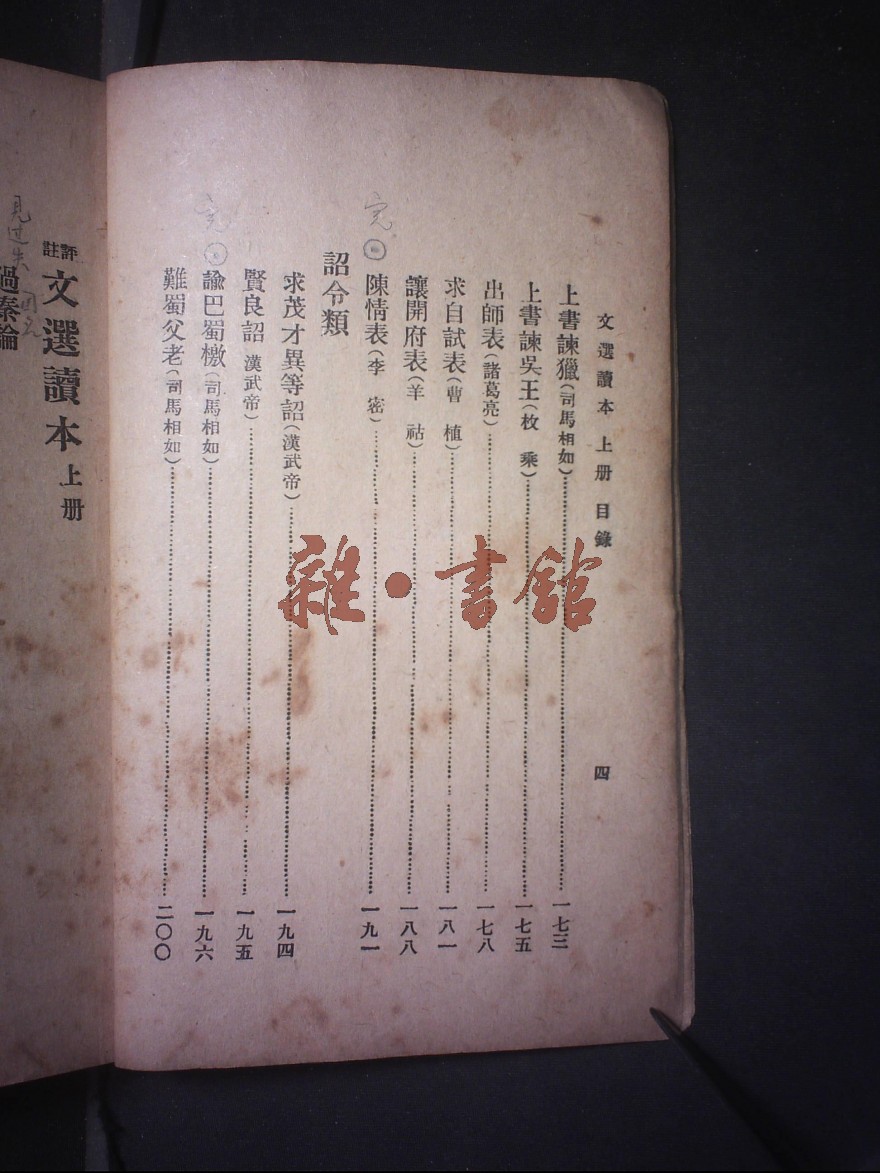 文選讀本 上册 目錄 四
上書諫獵(司馬相如)……一七三
上書諫吳王(枚 乘)……一七五
出師表(諸葛亮)……一七八
求自試表(曹 植)……一八一
讓開府表(羊 祜)……一八八
完
陳情表(李 密)……一九一
詔令類
求茂才異等詔(漢武帝)……一九四
賢良詔 漢武帝)……一九五
完
諭巴蜀檄(司馬相如)……一九六
難蜀父老(司馬相如)……二〇〇
評註文選讀本 上册
過秦論
雜·書館